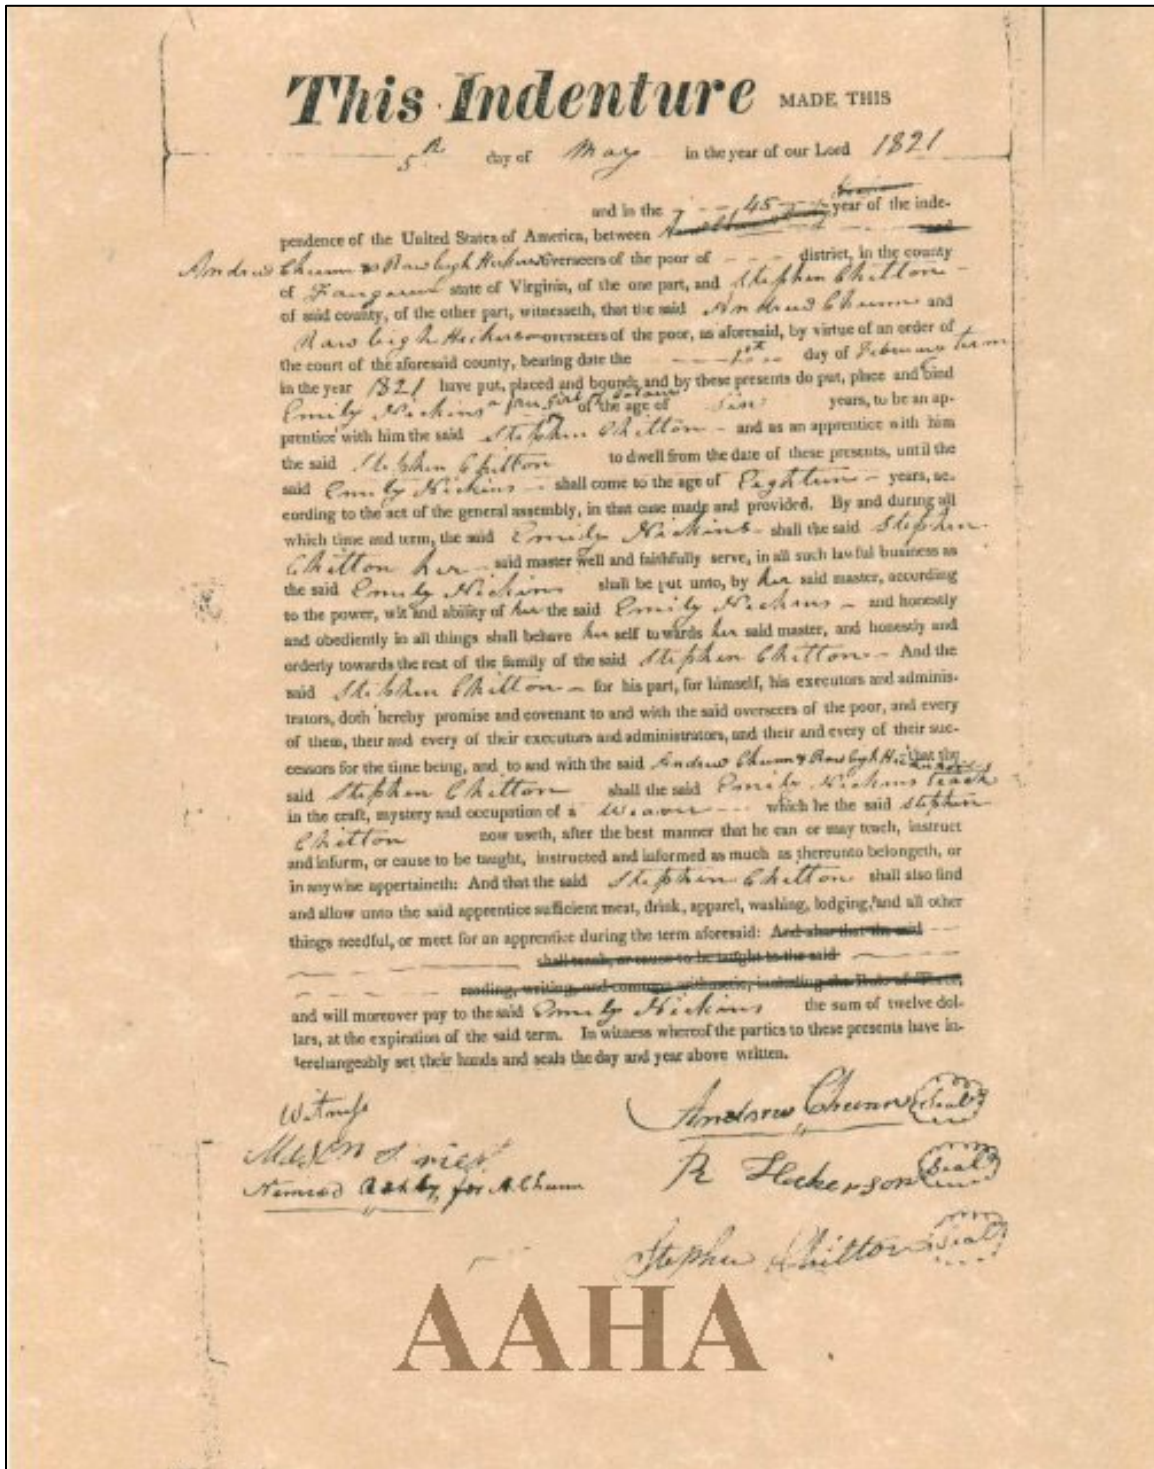 This Indenture MADE THIS
5th day of May in the year of our Lord 1821
and in the 45 year of the inde-
pendence of the United States of America, between
Andrew Chunn & Rawleigh Hickerson overseers of the poor of district, in the county
of Fauquier state of Virginia, of the one part, and Stephen Chilton
of said county, of the other part, witnesseth, that the said Andrew Chunn and
Rawleigh Hickerson overseers of the poor, as aforesaid, by virtue of an order of
the court of the aforesaid county, bearing date the day of February term
in the year 1821 have put, placed and bound, and by these presents do put, place and bind
Emily Nickins a free girl of Colour of the age of Six years, to be an ap-
prentice with him the said Stephen Chilton and as an apprentice with him
the said Stephen Chilton to dwell from the date of these presents, until the
said Emily Nickins shall come to the age of Eighteen years, ac-
cording to the act of the general assembly, in that case made and provided. By and during all
which time and term, the said Emily Nickins shall the said Stephen
Chilton her said master well and faithfully serve, in all such lawful business as
the said Emily Nickins shall be put unto, by her said master, according
to the power, wit and ability of her the said Emily Nickins and honestly
and obediently in all things shall behave her self towards her said master, and honestly and
orderly towards the rest of the family of the said Stephen Chilton And the
said Stephen Chilton for his part, for himself, his executors and adminis-
trators, doth hereby promise and covenant to and with the said overseers of the poor, and every
of them, their and every of their executors and administrators, and their and every of their suc-
cessors for the time being, and to and with the said Andrew Chunn & Rawleigh Hickerson that the
said Stephen Chilton shall the said Emily Nickins teach
in the craft, mystery and occupation of a Weaver which he the said Stephen
Chilton now useth, after the best manner that he can or may teach, instruct
and inform, or cause to be taught, instructed and informed as much as thereunto belongeth, or
in anywise appertaineth: And that the said Stephen Chilton shall also find
and allow unto the said apprentice sufficient meat, drink, apparel, washing, lodging, and all other
things needful, or meet for an apprentice during the term aforesaid: And also that the said
shall teach, or cause to be taught to the said
reading, writing, and common arithmetic, including the Rule of Three,
and will moreover pay to the said Emily Nickins the sum of twelve dol-
lars, at the expiration of the said term. In witness whereof the parties to these presents have in-
terchangeably set their hands and seals the day and year above written.
Witness
Andrew Chunn Seal
R Hickerson Seal
Nimrod Ashby for A. Chunn
Stephen Chilton Seal
AAHA